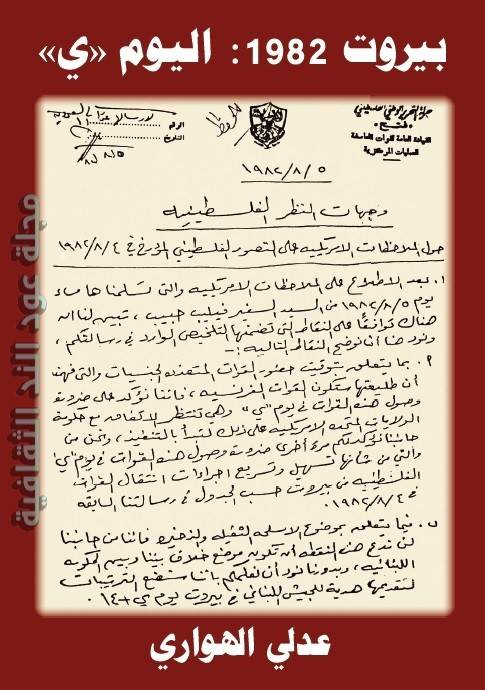 بيروت 1982: اليوم «ي»
حركة التحرير الوطني الفلسطيني
فتح
القيادة العامة لقوات العاصفة
العمليات المركزية
الرقم
التاريخ ٨٢/٨/٥
١٩٨٢/٨/٥
وجهات النظر الفلسطينيه
حول الملاحظات الامريكيه على التصور الفلسطيني المؤرخ في ١٩٨٢/٨/٤
١. بعد الاطلاع على الملاحظات الامريكيه والتي تسلمناها مساء
يوم ١٩٨٢/٨/٥ من السيد السفير فيليب حبيب، تبين لنا ان
هناك توافقا على النقاط التي تضمنها التلخيص الوارد في رسالتكم،
ونود هنا أن نوضح النقاط التاليه :-
٢. بما يتعلق بتوقيت حضور القوات المتعدده الجنسيات والتي فهمنا
أن طليعتها ستكون القوات الفرنسيه، فاننا نؤكد على ضرورة
وصول هذه القوات في يوم "ي" وهي تنتظر الاتفاق مع حكومة
الولايات المتحده الامريكيه على ذلك لتبدأ بالتنفيذ، ونحن من
جانبنا نؤكد لكم مرة أخرى ضرورة وصول هذه القوات في يوم "ي"
والتي من شأنها تسهيل وتسريع اجراءات انتقال القوات
الفلسطينيه من بيروت حسب الجدول في رسالتنا السابقه
في ١٩٨٢/٨/٤.
٣. فيما يتعلق بموضوع الاسلحه الثقيله والذخيره فاننا من جانبنا
لن ندع هذه النقطه أن تكون موضع خلاف بيننا وبين الحكومه
اللبنانيه، وبدورنا نود أن نعلمكم باننا سنضع الترتيبات
لتقديمها هدية للجيش اللبناني في بيروت يوم ي + ١٤.
عدلي الهواري
مجلة عود الند الثقافية